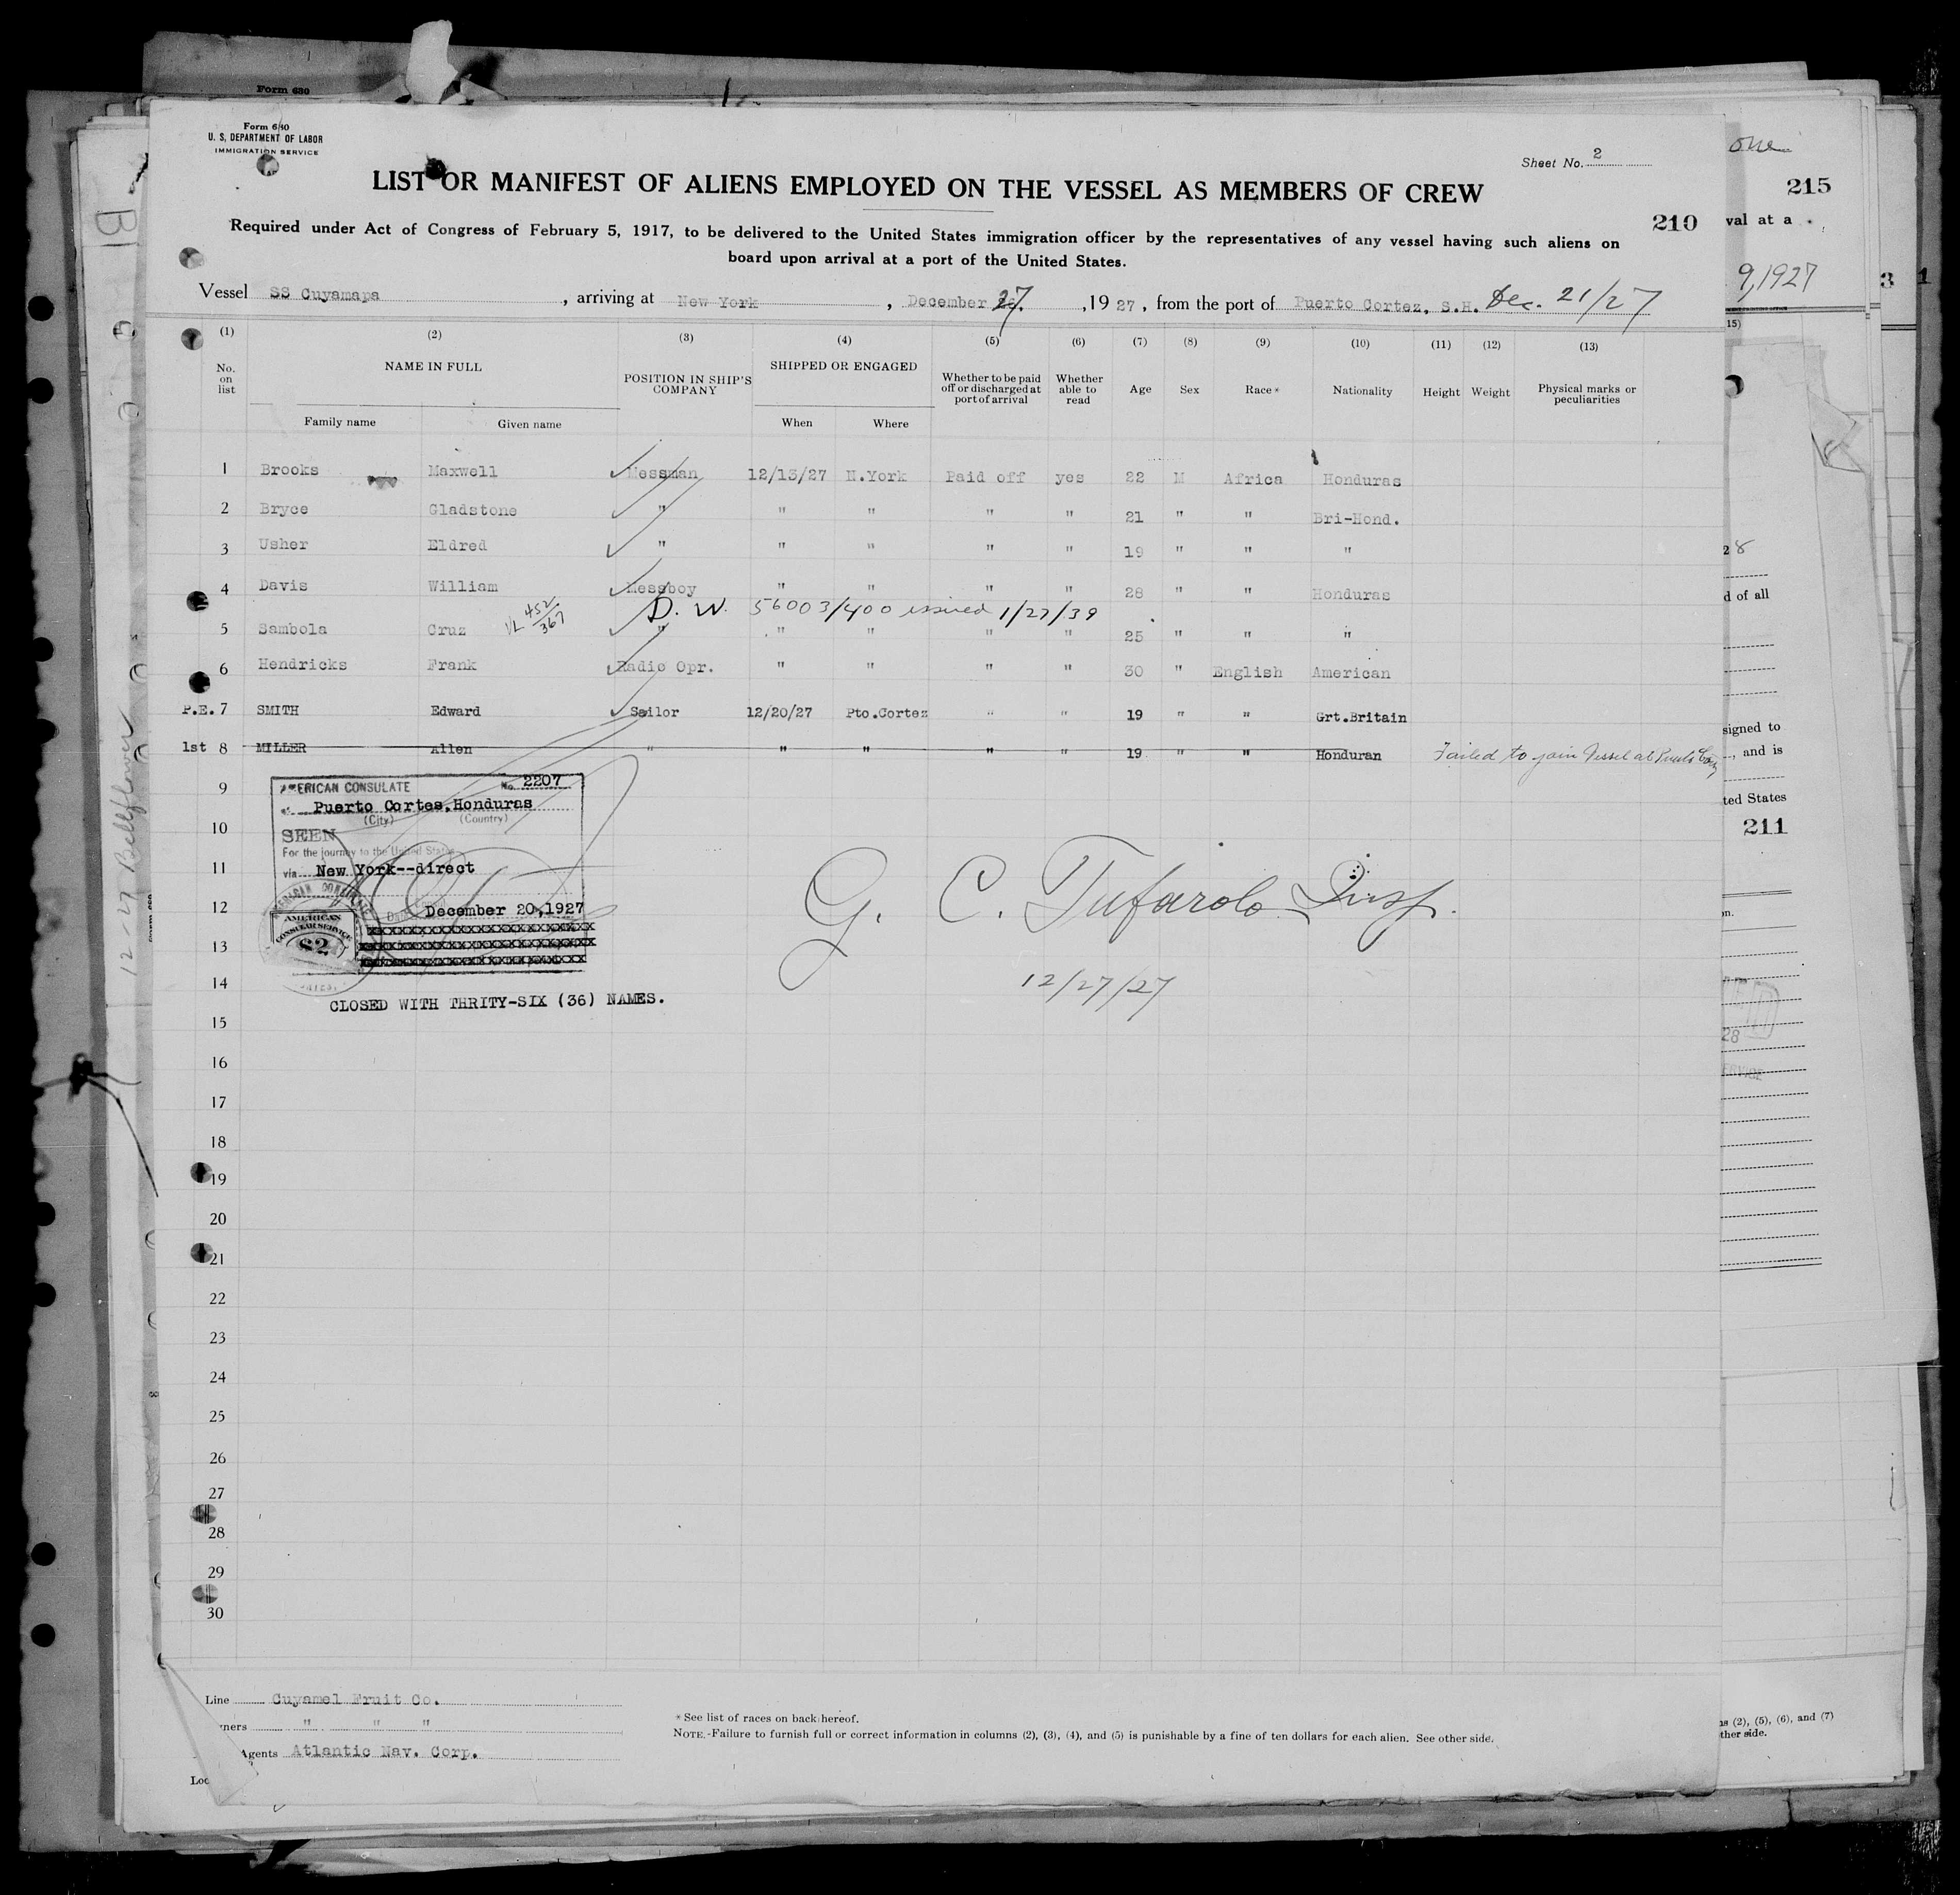 Form 680
Form 680
U. S. DEPARTMENT OF LABOR
IMMIGRATION SERVICE
Sheet No. 2
one
215
LIST OR MANIFEST OF ALIENS EMPLOYED ON THE VESSEL AS MEMBERS OF CREW
210
Required under Act of Congress of February 5, 1917, to be delivered to the United States immigration officer by the representatives of any vessel having such aliens on
val at a
board upon arrival at a port of the United States.
9, 1927
3 1
Vessel SS Cuyamapa , arriving at New York , December 27 , 19 27 , from the port of Puerto Cortez, S.H. Dec. 21/27
(1) (2) (3) (4) (5) (6) (7) (8) (9) (10) (11) (12) (13) 15)
No. on list NAME IN FULL POSITION IN SHIP'S COMPANY SHIPPED OR ENGAGED Whether to be paid off or discharged at port of arrival Whether able to read Age Sex Race* Nationality Height Weight Physical marks or peculiarities
Family name Given name When Where
1 Brooks Maxwell Messman 12/13/27 N.York Paid off yes 22 M Africa Honduras
2 Bryce Gladstone " " " " " 21 " " Bri-Hond.
3 Usher Eldred " " " " " 19 " " "
28
4 Davis William Messboy " " " " 28 " " Honduras
d of all
VL 452/367 D. W. 56003/400 issued 1/27/39
5 Sambola Cruz " " " " " 25 " " "
6 Hendricks Frank Radio Opr. " " " " 30 " English American
P.E. 7 SMITH Edward Sailor 12/20/27 Pto.Cortez " " 19 " " Grt.Britain
signed to
1st 8 MILLER Allen " " " " " 19 " " Honduran Failed to join Vessel at
, and is
9
AMERICAN CONSULATE No. 2207
at Puerto Cortes, Honduras
(City) (Country)
ted States
211
10
SEEN
For the journey to the United States
11
via New York--direct
12
December 20, 1927
AMERICAN
CONSULAR SERVICE
$2
G. C. Tufarolo Insp.
13
14
12/27/27
CLOSED WITH THRITY-SIX (36) NAMES.
15
28
16
17
18
19
20
21
22
23
24
25
26
27
28
29
30
12-27 Bellflower
Line Cuyamel Fruit Co.
ners " " "
Agents Atlantic Nav. Corp.
Loc
*See list of races on back hereof.
NOTE.-Failure to furnish full or correct information in columns (2), (3), (4), and (5) is punishable by a fine of ten dollars for each alien. See other side.
ns (2), (5), (6), and (7)
ther side.